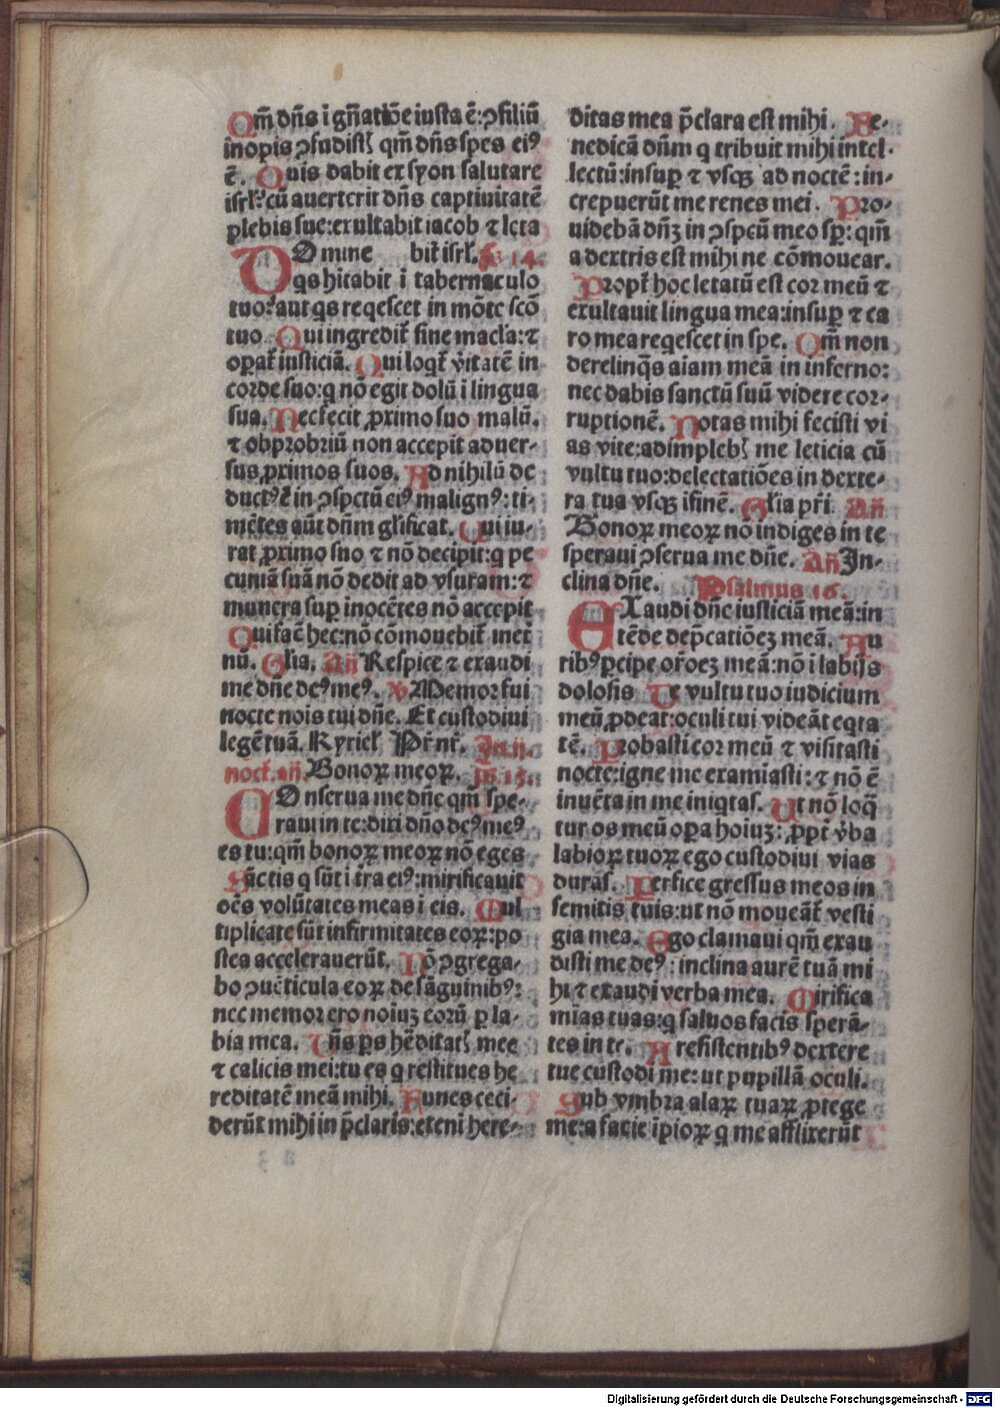 Qm̄ dn̄s i gn̄atiōe iusta ē: ꝯsiliū
inopis ꝯfudistꝭ qm̄ dn̄s spes eiꝰ
ē. Quis dabit ex syon salutare
isrl̓: cū auerterit dn̄s captiuitatē
plebis sue: exultabit iacob ⁊ leta
bit̄ isrl̓. Ps 14.
DOmine
qs hitabit i tabernaculo
tuo: aut qs reqescet in mōte scō
tuo Qui ingredit̄ sine macl̓a: ⁊
opat̄ iusticiā. Qui loqt̄ v̓itatē in
corde suo: q nō egit dolū i lingua
sua. Nec fecit ꝓximo suo malū.
⁊ obprobriū non accepit aduer-
sus ꝓximos suos. Ad nihilū de
ductꝰ ē in ꝯspctū eiꝰ malignꝰ: ti-
mētes aūt dn̄m gl̓ificat. Qui iu-
rat ꝓximo suo ⁊ nō decipit: q pe
cuniā suā nō dedit ad vsuram: ⁊
munera sup inocētes nō accepit
Qui fac̄ hec: nō cōmouebit̄ inet̄
nū. Gl̓ia. An̄ Respice ⁊ exaudi
me dn̄e deꝰ meꝰ. V Memor fui
nocte nois tui dn̄e. Et custodiui
legē tuā. Kyriel̓ Pr̄ nr̄. In .ij.
noct̄. an̄. Bonoꝝ meoꝝ. ps. 15.
COnserua me dn̄e qm̄ spe-
raui in te: dixi dn̄o deꝰ meꝰ
es tu: qm̄ bonoꝝ meoꝝ nō eges
Sāctis q sūt i tra eiꝰ: mirificauit
oēs volūtates meas i eis. Mul
tiplicate sūt infirmitates eoꝝ: po
stea accelerauerūt. Nō ꝯgrega-
bo ꝯuēticula eoꝝ de sāguinibꝰ:
nec memor ero noiuꝫ eorū p la-
bia mea. Dn̄s ps hēditatꝭ mee
⁊ calicis mei: tu es q restitues he
reditatē meā mihi. Funes ceci-
derūt mihi in p̄claris: eteni here-
ditas mea p̄clara est mihi. Be-
nedicā dn̄m q tribuit mihi intel-
lectū: insup ⁊ vsqꝫ ad noctē: in-
crepuerūt me renes mei. Pro-
uidebā dn̄ꝫ in ꝯspcū meo sp̄: qm̄
a dextris est mihi ne cōmouear.
Propt̄ hoc letatū est cor meū ⁊
exultauit lingua mea: insup ⁊ ca
ro mea reqescet in spe. Qm̄ non
derelinqs aiam meā in inferno:
nec dabis sanctū suū videre cor-
ruptionē. Notas mihi fecisti vi
as vite: adimplebꝭ me leticia cū
vultu tuo: delectatiōes in dexte-
ra tua vsqꝫ i finē. Gl̓ia pr̄i. An̄
Bonoꝝ meoꝝ nō indiges in te
speraui ꝯserua me dn̄e. An̄ In-
clina dn̄e. Psalmus 16.
EXaudi dn̄e iusticiā meā: in
tēde dep̄catiōeꝫ meā. Au
ribꝰ pcipe or̄oeꝫ meā: nō i labijs
dolosis De vultu tuo iudicium
meū ꝓdeat: oculi tui videāt eqta
tē. Probasti cor meū ⁊ visitasti
nocte: igne me examiasti: ⁊ nō ē
inuēta in me iniqtas. Ut nō loq̄
tur os meū opa hoiuꝫ: ꝓpt̄ v̓ba
labioꝝ tuoꝝ ego custodiui vias
duras. Perfice gressus meos in
semitis tuis: ut nō moueāt̄ vesti
gia mea. Ego clamaui qm̄ exau
disti me deꝰ: inclina aurē tuā mi
hi ⁊ exaudi verba mea. Mirifica
mias tuas: q saluos facis sperā-
tes in te. A resistentibꝰ dextere
tue custodi me: ut pupillā oculi.
Sub vmbra alaꝝ tuaꝝ ꝓtege
me: a facie ipioꝝ q me afflixerūt
Digitalisierung gefördert durch die Deutsche Forschungsgemeinschaft - DFG